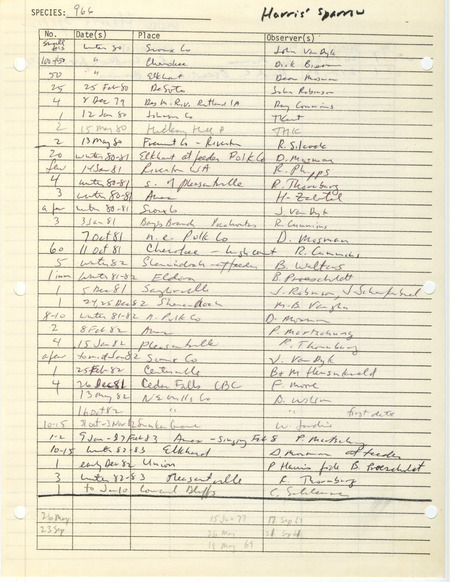 SPECIES: 966 Harris' Sparrow
No. Date(s) Place Observer(s)
small winter 80 Sioux Co John Van Dyk
100+50 " Cherokee Dick Bierman
50 " Elkhart Dean Mosman
25 25 Feb 80 DeSoto John Robinson
4 8 Dec 79 Des M. Riv. Rutland IA Ray Cummins
1 12 Jan 80 Johnson Co T Kent
2 15 May 80 THK
2 13 May 80 Fremont Co - Riverton R. Silcock
20 winter 80-81 Elkhart at feeder Polk Co D. Mosman
few 14 Jan 81 Riverton WA R. Phipps
4 winter 80-81 S. of Pleasantville R. Thornburg
3 winter 80-81 Ames H. Zaletel
a few winter 80-81 Sioux Co J. Van Dyk
3 3 Jan 81 Pocahontas R. Cummins
7 Oct 81 n.e. Polk Co D. Mosman
60 11 Oct 81 Cherokee - high count R. Cummins
5 winter 82 Shenandoah - at feeder B. Walters
1 imm winter 81-82 Eldora B. Proescholdt
1 5 Dec 81 Saylorville J. Robinson J. Scharfenkamp
1 24, 25 Dec 82 Shenandoah M.B. Vaughn
8-10 winter 81-82 n. Polk Co D. Mosman
2 8 Feb 82 Ames P. Martsching
4 15 Jan 82 Pleasantville R. Thornburg
a few to mid Jan 82 Sioux Co J. Van Dyk
1 25 Feb 82 Centerville B + M
4 26 Dec 81 Cedar Falls CBC F. Moore
13 May 82 N.E. Mills Co D. Wilson
16 Oct 82 " " first date
10-15 31 Oct - 3 Nov 82 W.
1-2 9 Jan - 27 Feb 83 Ames - Singing Feb 8 P. Martsching
10-15 winter 82-83 Elkhart D Mosman at feeder
1 early Dec 82 Union P Harris fide B. Proescholdt
3 winter 82-83 Pleasantville R. Thornburg
1 to Jan 10 Council Bluffs
26 May 15 Jan 77 17 Sep 67
23 Sep 26 May
19 May 69